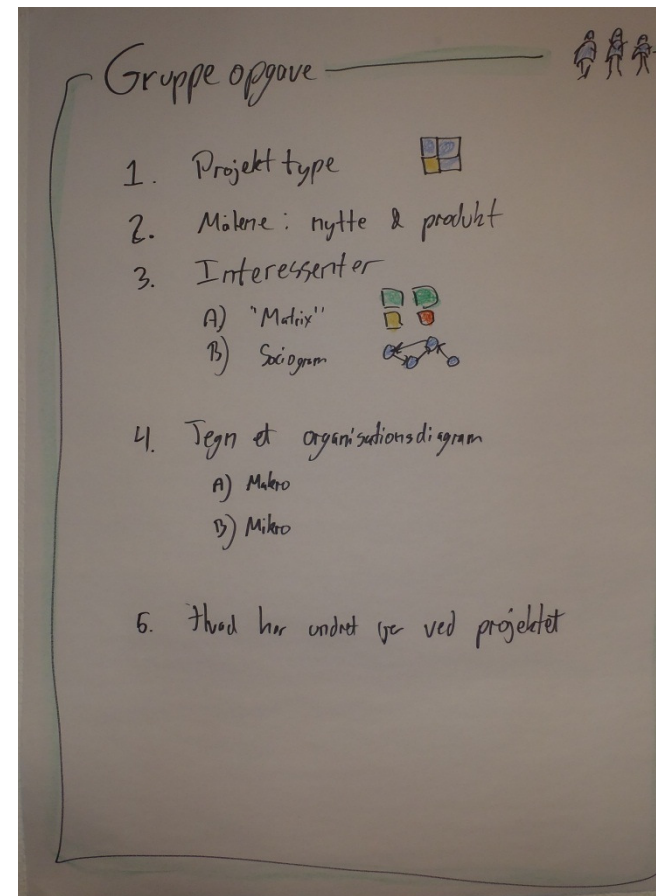 Gruppe opgave
1. Projekt type
2. Målene: nytte & produkt
3. Interessenter
A) "Matrix"
B) Sociogram
4. Tegn et organisationsdiagram
A) Makro
B) Mikro
5. Hvad har undret jer ved projektet